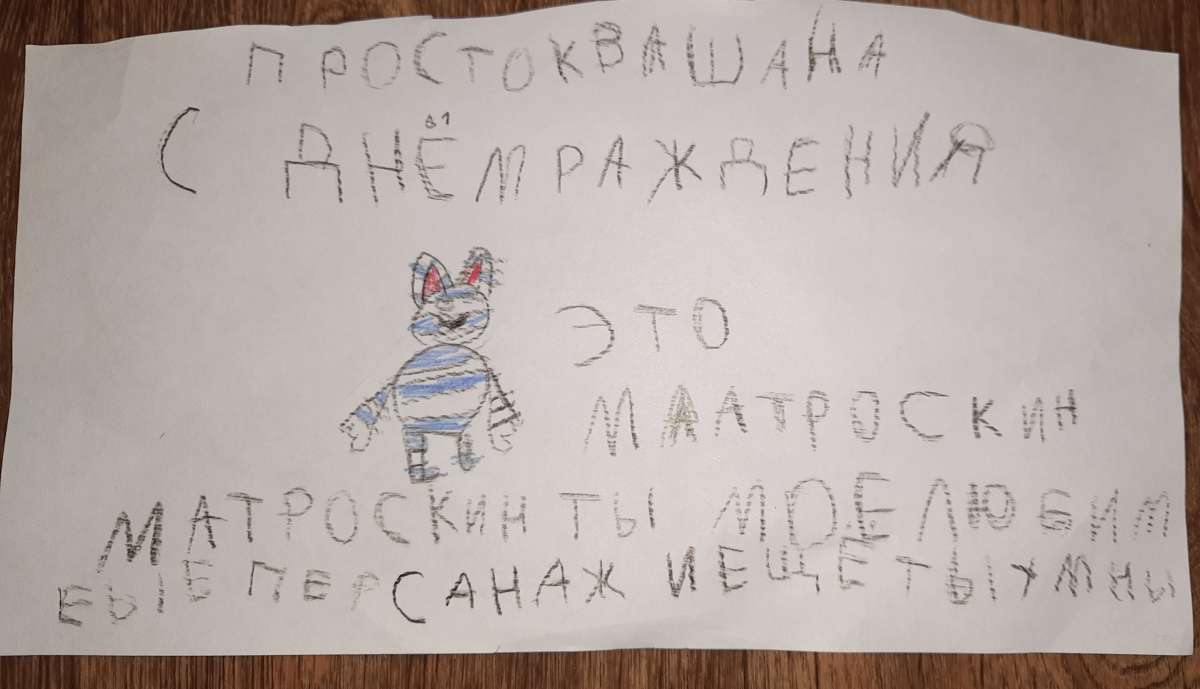 ПРОСТОКВАШАНА
С ДНЁМ РАЖДЕНИЯ
ЭТО
МААТРОСКИН
МАТРОСКИН ТЫ МОЕ ЛЮБИМ
ПЕРСАНАЖ ИЕЩЕ ТЫ УМНЫ